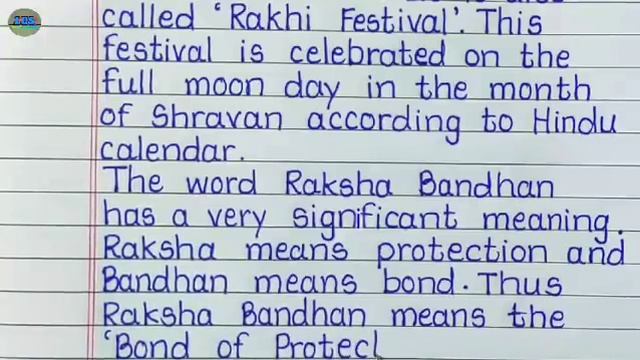 called 'Rakhi Festival'. This
festival is celebrated on the
full moon day in the month
of Shravan according to Hindu
calendar.
The word Raksha Bandhan
has a very significant meaning.
Raksha means protection and
Bandhan means bond. Thus
Raksha Bandhan means the
'Bond of Protecl